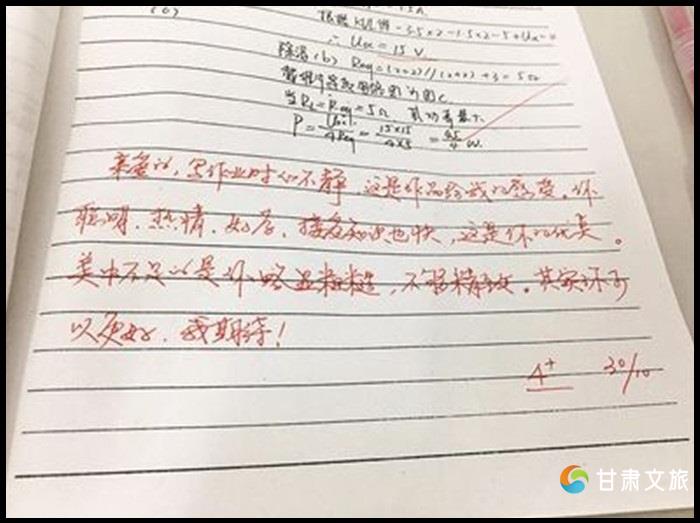 (6)
根据KVL得 -3.5×2-1.5×2-5+Uoc=0
∴ Uoc = 15 V
除源(b) Req = (2+2)//(2+2)+3 = 5Ω
当RL=Req=5Ω,其功率最大.
P = U²oc/4Req = 15×15/4×5 = 45/4 W.
亲爱的,写作业时心不静,这是作品给我的感受。你
聪明、热情、好学、接受知识也快,这是你的优点。
美中不足的是你略显粗糙,不够精致。其实你可
以更好,我期待!
A+ 30/10
甘肃文旅